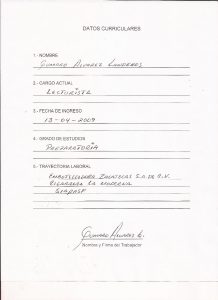 DATOS CURRICULARES
1.- NOMBRE
Gumaro Alvarez Landeros
2.- CARGO ACTUAL
LECTURISTA
3.- FECHA DE INGRESO
13-04-2009
4.- GRADO DE ESTUDIOS
PREPARATORIA
5.- TRAYECTORIA LABORAL
EMBOTELLADORA ZACATECAS S.A. DE C.V.
LA MODERNA
Gumaro Alvarez L.
Nombre y Firma del Trabajador